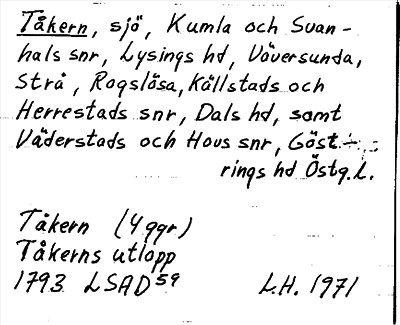 Tåkern, sjö, Kumla och Svan-
hals snr, Lysings hd, Väversunda,
Strå, Rogslösa, Källstads och
Herrestads snr, Dals hd, samt
Väderstads och Hovs snr, Göst-
rings hd Östg.l.
Tåkern (4 ggr)
Tåkerns utlopp
1793 LSAD 59
L.H. 1971